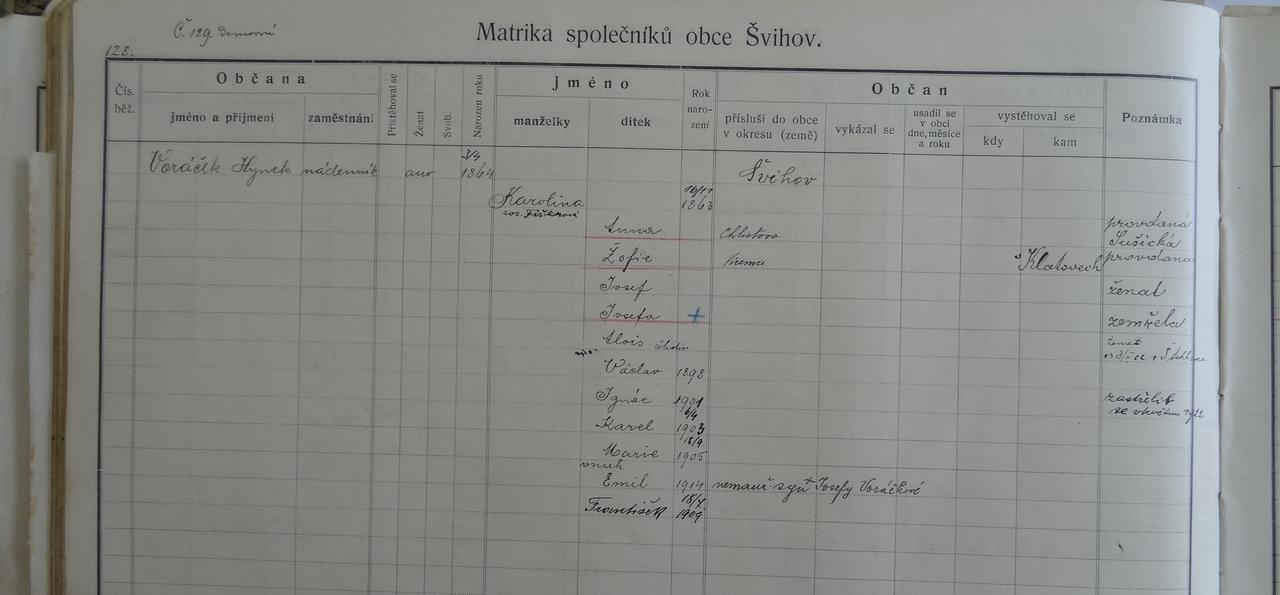 Č. 129. Domovní
128.
Matrika společníků obce Švihov.
Čís. běž.
Občana
jméno a přijmení
zaměstnání
Přistěhoval se
Ženat
Svob.
Narozen roku
Jméno
manželky
ditek
Rok naro- zení
Občan
přísluší do obce v okresu (země)
vykázal se
usadil se v obci dne, měsíce a roku
vystěhoval se
kdy
kam
Poznámka
Voráček Hynek nádenník ano 3/4 1864 Švihov
Karolina 16/11 1863
roz. Fišerová
Anna provdaná Sušická
Žofie v Klatovech provdana
Josef ženat
Josefa + zemřela
Alois ženat
Václav 1898
Ignác 1901 zastřelil se v květnu 1922
Karel 6/4 1903
Marie 18/9. 1905
vnuk
Emil 1914 nemanž syn Josefy Voráčkové
František 18/7. 1909